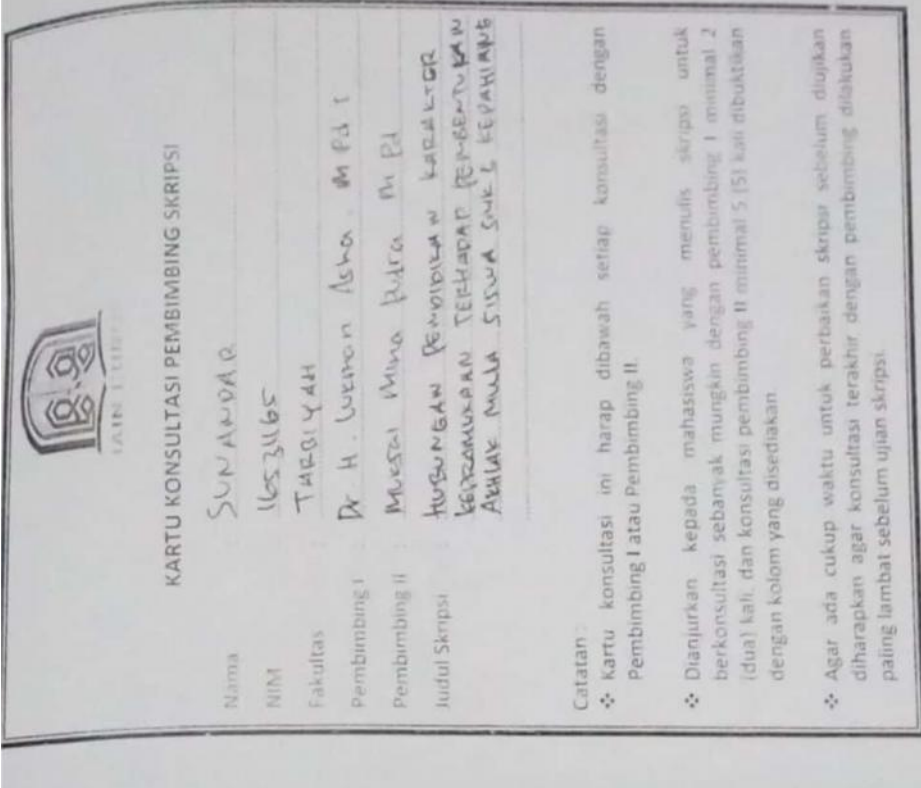 IAIN CURUP
KARTU KONSULTASI PEMBIMBING SKRIPSI
Nama : SUNANDAR
NIM : 16531165
Fakultas : TARBIYAH
Pembimbing I : Dr. H. Lukman Asha. M Pd I
Pembimbing II : Muksal Mina Putra M Pd
Judul Skripsi : HUBUNGAN PENDIDIKAN KARAKTER
KEPRAMUKAAN TERHADAP PEMBENTUKAN
AKHLAK MULA SISWA SMK 6 KEPAHIANG
Catatan :
❖ Kartu konsultasi ini harap dibawah setiap konsultasi dengan
Pembimbing I atau Pembimbing II.
❖ Dianjurkan kepada mahasiswa yang menulis skripsi untuk
berkonsultasi sebanyak mungkin dengan pembimbing I minimal 2
(dua) kali, dan konsultasi pembimbing II minimal 5 (5) kali dibuktikan
dengan kolom yang disediakan
❖ Agar ada cukup waktu untuk perbaikan skripsi sebelum diujikan
diharapkan agar konsultasi terakhir dengan pembimbing dilakukan
paling lambat sebelum ujian skripsi.